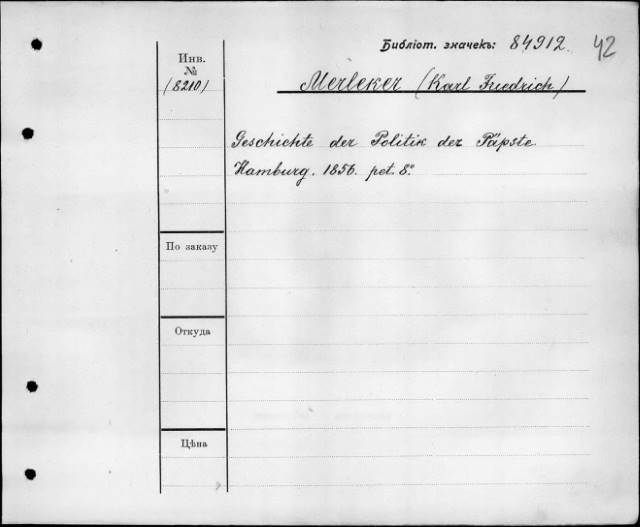 Библіот. значекъ: 84912. 42
Инв.
№
(8210)
Merleker (Karl Friedrich)
Geschichte der Politik der Päpste.
Hamburg. 1856. pet. 8º
По заказу
Откуда
Цѣна